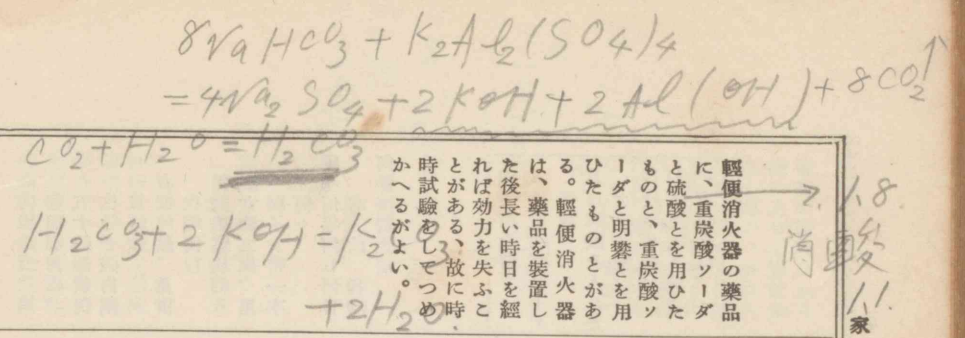 8NaHCO3 + K2Al2(SO4)4
=4Na2SO4 + 2KOH + 2Al(OH) + 8CO2↑
CO2+H2O = H2CO3
H2CO3+2KOH=K2CO3
+2H2O.
輕便消火器の藥品
に、重炭酸ソーダ
と硫酸とを用ひた
ものと、重炭酸ソ
ーダと明礬とを用
ひたものとがあ
る。輕便消火器
は、藥品を裝置し
た後長い時日を經
れば効力を失ふこ
とがある、故に時
時試驗をしてつめ
かへるがよい。
1.8.
硝酸
1.1.
家